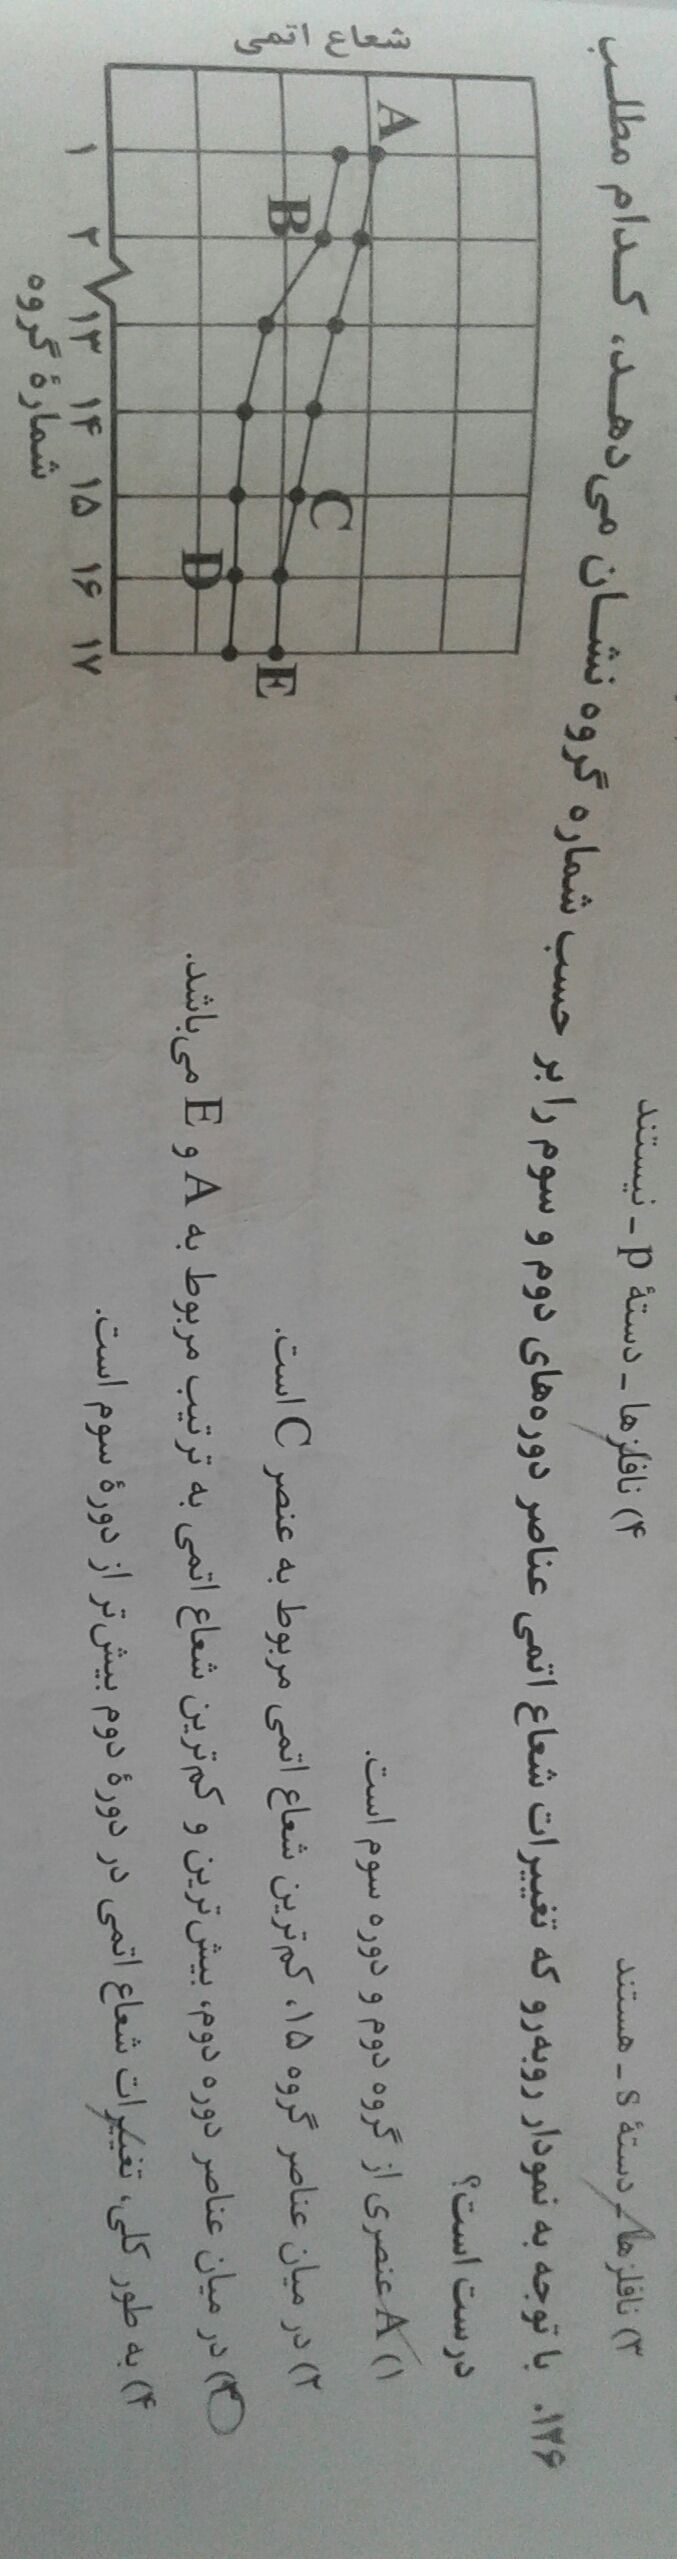 ۳) نافلزها - دستهٔ s - هستند
۴) نافلزها - دستهٔ p - نیستند
۱۲۶. با توجه به نمودار روبه‌رو که تغییرات شعاع اتمی عناصر دوره‌های دوم و سوم را بر حسب شماره گروه نشان می‌دهد، کدام مطلب
درست است؟
۱) A عنصری از گروه دوم و دوره سوم است.
۲) در میان عناصر گروه ۱۵، کم‌ترین شعاع اتمی مربوط به عنصر C است.
۳) در میان عناصر دوره دوم، بیش‌ترین و کم‌ترین شعاع اتمی به ترتیب مربوط به A و E می‌باشد.
۴) به طور کلی، تغییرات شعاع اتمی در دورهٔ دوم بیش‌تر از دورهٔ سوم است.
شعاع اتمی
A
B
C
D
E
۱ ۲ ۱۳ ۱۴ ۱۵ ۱۶ ۱۷
شمارهٔ گروه